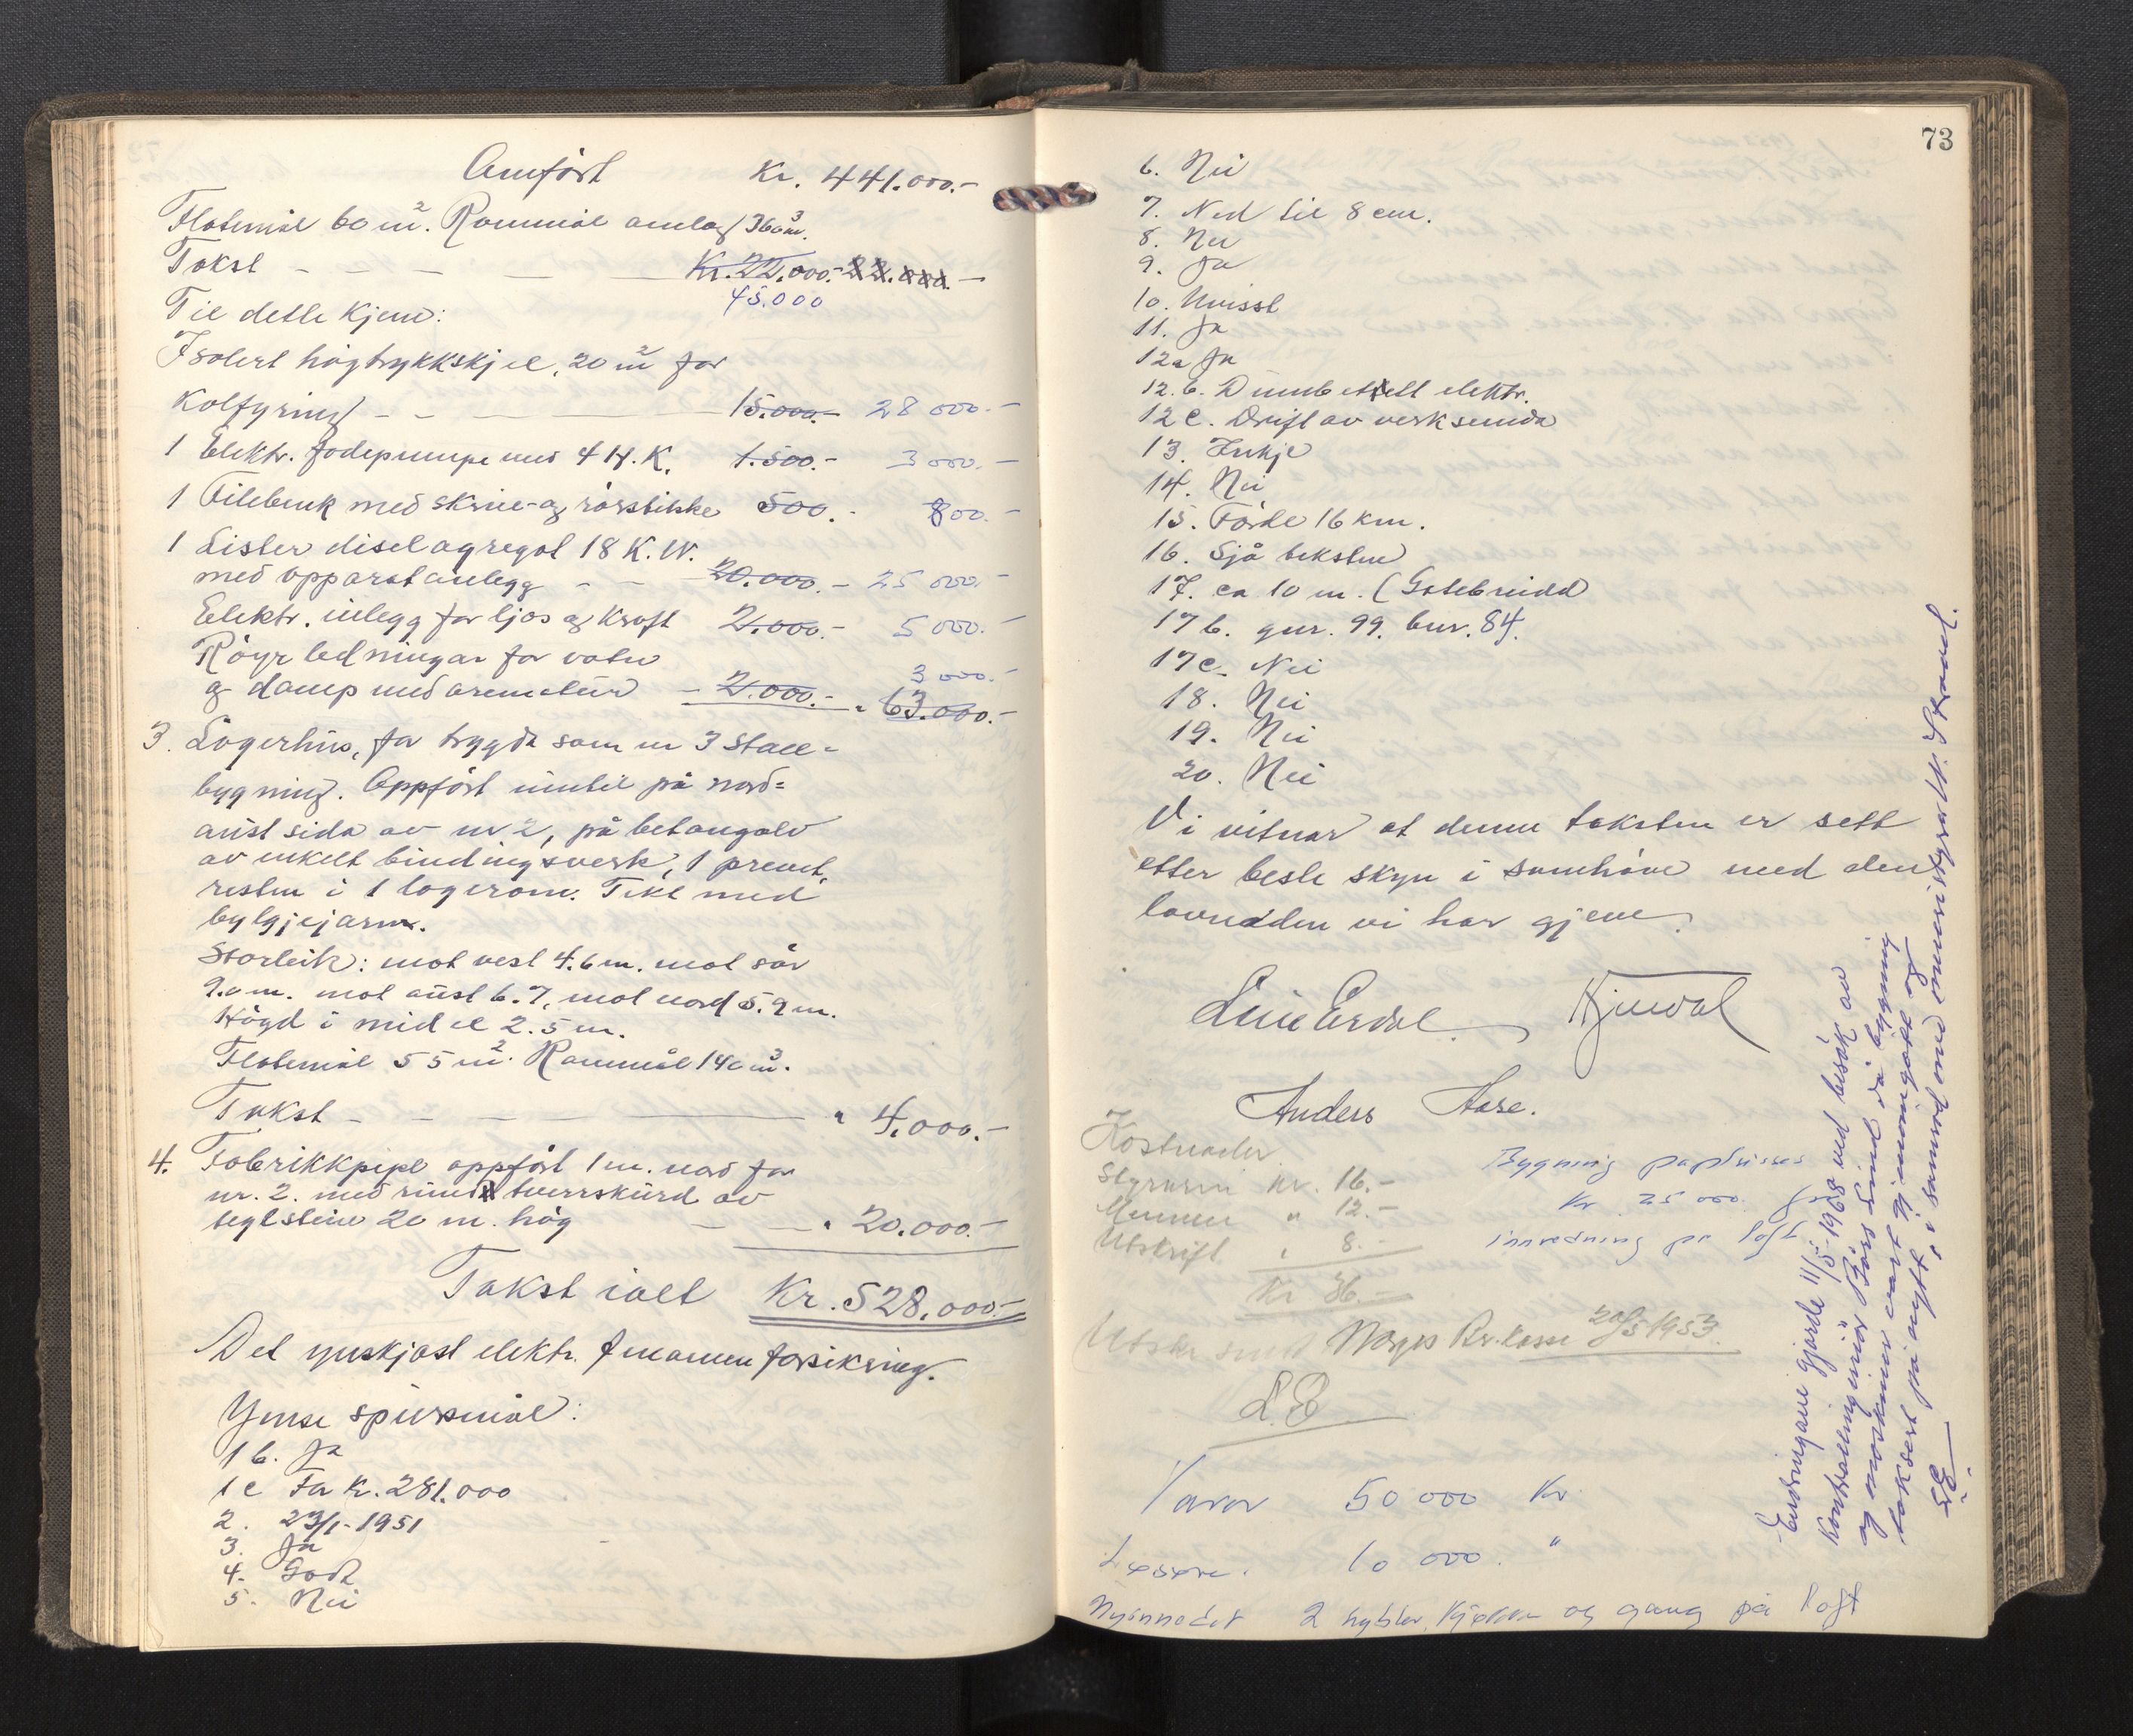 Amført Kr. 441.000.-
Flatemål 60 m². Rommål omlag 360 m³.
Takst - - - Kr. 22.000.- 22.000.-
45.000
Til dette kjem:
Isolert högtrykkskjel, 20 m² for
Kolfyring - - 15.000.- 28 000.-
1 Elektr. födepumpe med 4 H.K. 1.500.- 3 000.-
1 Filebenk med skrue- og rörstikke 500.- 800.-
1 Lister disel agregat 18 K.W.
med apparatanlegg - - 20.000.- 25 000.-
Elektr. inlegg for ljos og kraft 2.000.- 5 000.-
Röyrledningar for vatn 3 000.-
og damp med armatur - 2.000.- " 63.000.-
3. Lagerhus, før bygda som ein 3 stall-
bygning. Oppført inntil på nord-
aust sida av nr 2, på betongolv
av enkelt bindingsverk, 1
resten i 1 lagerom. Tekt med
bylgjejarn.
Storleik: mot vest 4.6 m. mot sör
9.0 m. mot aust 6.7, mot nord 5.9 m.
Högd i midel 2.5 m.
Flatemål 55 m². Rommål 140 m³.
Takst - - - " 4.000.-
4. Fabrikkpipe oppfört 1 m. nord for
nr. 2. med rund tverrskurd av
teglstein 20 m. hög - - " 20.000.-
Takst ialt Kr. 528.000.-
Det ynskjast elektr. fenomen forsikring.
Ymse spursmål:
1 b. Ja
1 c Ja K. 281.000
2. 23/1-1951
3. Ja
4. God
5. Nei
73
6. Nei
7. Ned til 8 cm.
8. Nei
9. Ja
10. Uvisst
11. Ja
12a Ja
12.b. Damp elektr.
12 c. Drift av verksemda
13. Inkje
14. Nei
15. Förde 16 km.
16. Sjå teksten
17. ca 10 m. (Gatebreidd
17 b. gnr. 99. bnr. 84.
17 c. Nei
18. Nei
19. Nei
20. Nei
Vi vitnar at denne taksten er sett
etter beste skyn i samhöve med den
lovnaden vi har gjeve.
Erdal Hjelvål
Anders Aase.
Kostnader
Styraren kr. 16.-
Mennene " 12.-
Utskrift " 8.-
Kr 36.-
Utskr. sendt Norges Br.kasse 20/5 1953.
L.E
Bygning
Kr. 25 000 for
innredning på loft
Varer 50 000 Kr
Løsøre. 10 000. "
Nyinnredet 2 hybler, kjøkken og gang på loft
Endringane gjorde 11/5-1968 ved besök av
Kontrollingeniör Lind då bygning
og maskiner vart gjennomgått og
taksert på nytt, i samråd med
LE